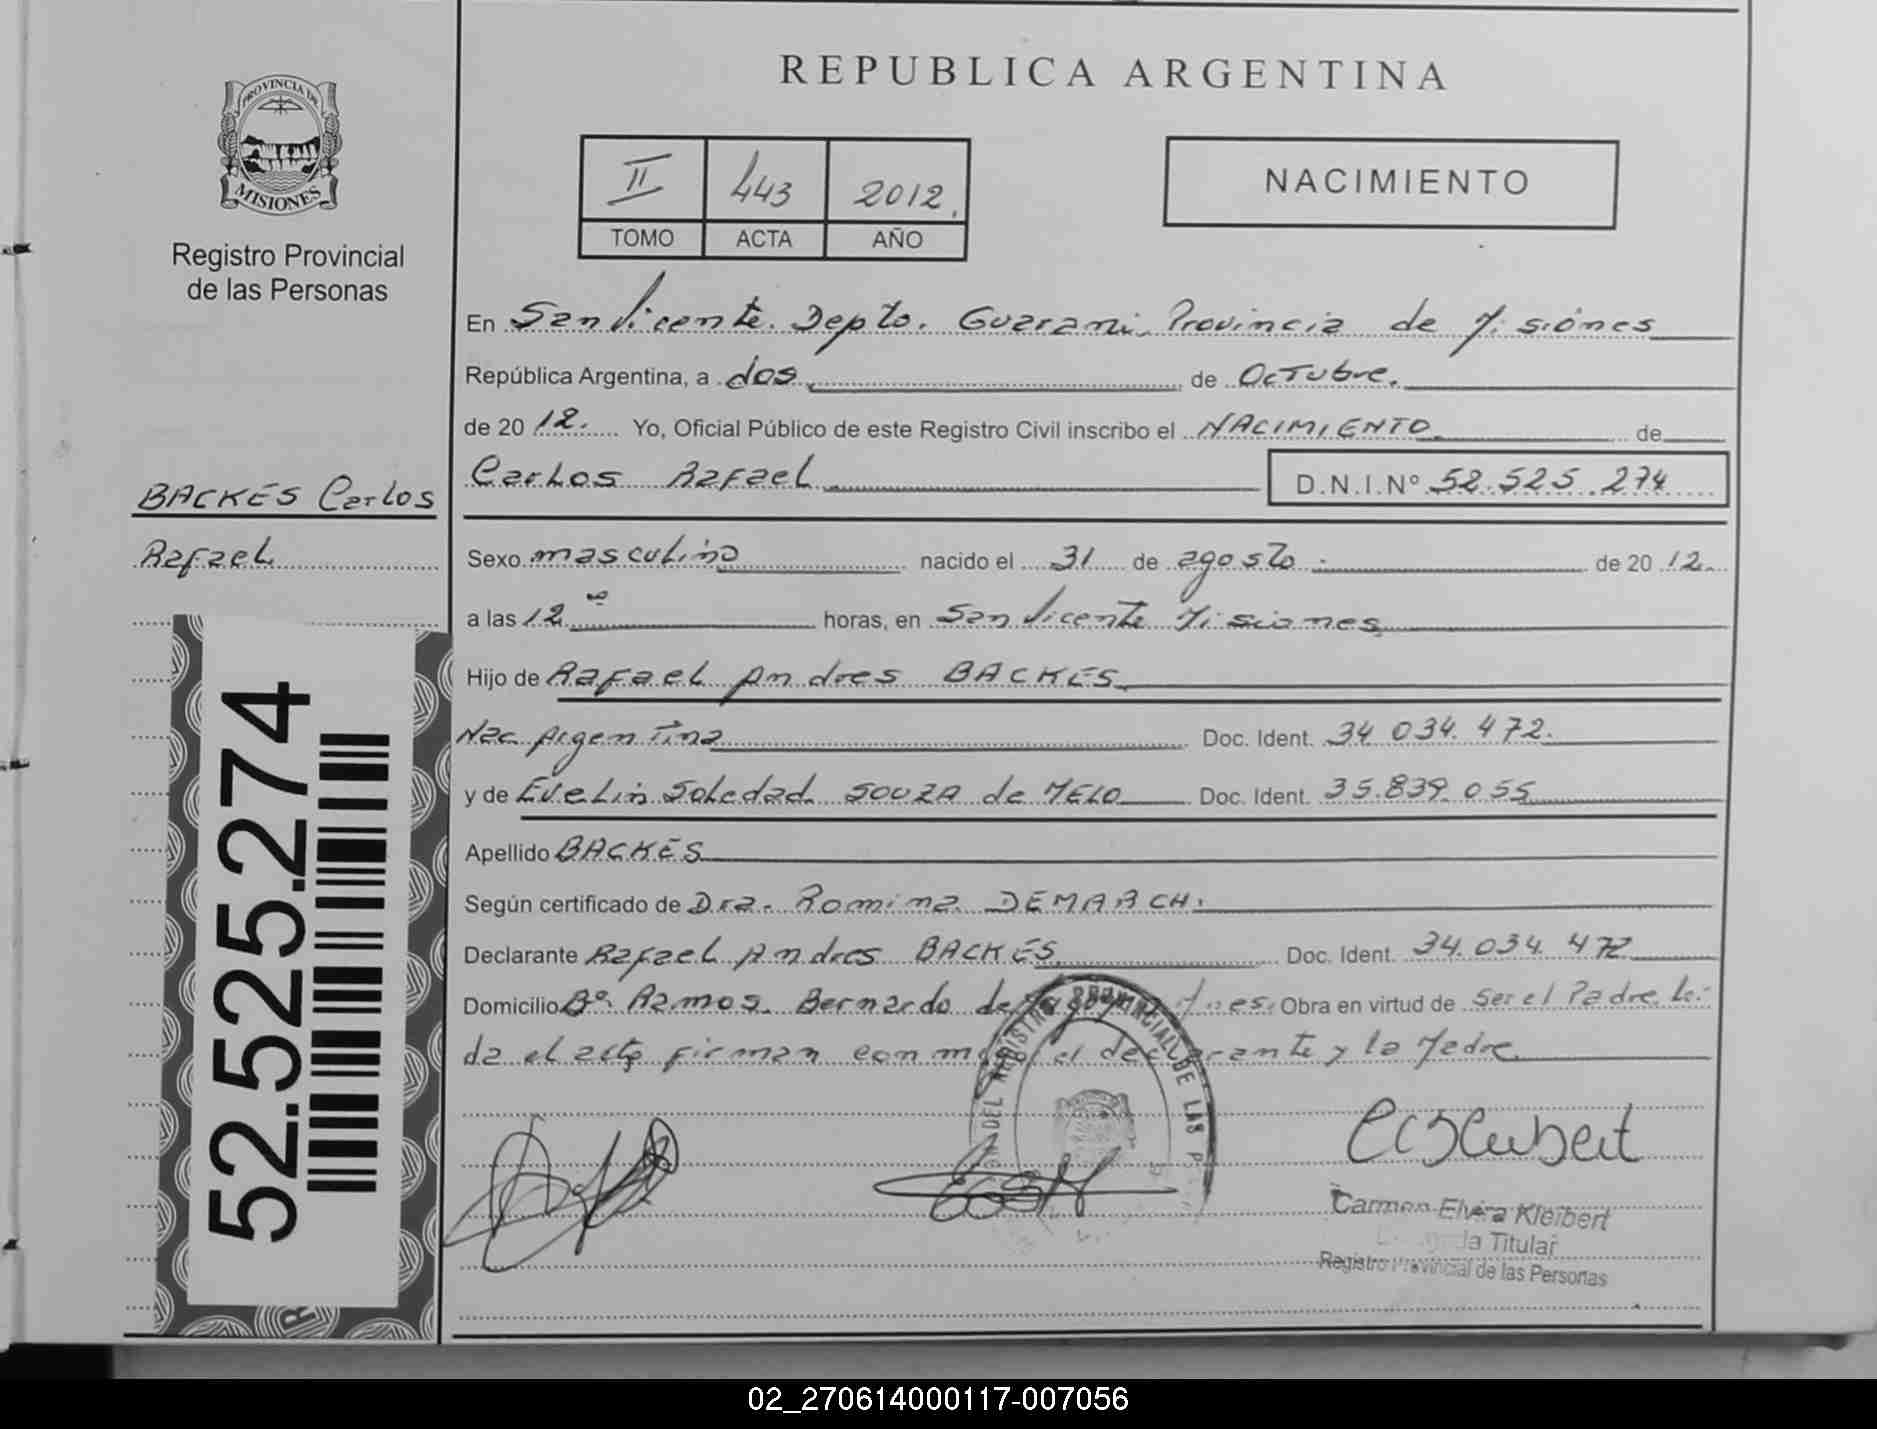 REPUBLICA ARGENTINA
PROVINCIA DE
MISIONES
Registro Provincial
de las Personas
II 443 2012.
TOMO ACTA AÑO
NACIMIENTO
En San Vicente. Depto. Guarani. Provincia de Misiónes
República Argentina, a dos de Octubre.
de 20 12. Yo, Oficial Público de este Registro Civil inscribo el NACIMIENTO de
Carlos Rafael D.N.I.Nº 52.525.274
BACKES Carlos
Rafael
Sexo masculino nacido el 31 de agosto de 20 12.
a las 12 horas, en San Vicente Misiones
Hijo de Rafael Andres BACKES
Nac Argentina Doc. Ident. 34 034.472.
y de Evelin Soledad SOUZA de MELO Doc. Ident. 35.839.055
Apellido BACKES
Según certificado de Dra. Romina DEMARCHI
Declarante Rafael Andres BACKES Doc. Ident. 34.034.472
Domicilio Bº Ramos. Bernardo de Obra en virtud de Ser el Padre. Lei-
da el acta firman con el declarante y la Madre
52.525.274
DEL REGISTRO PROVINCIAL DE LAS
Carmen Elvira Kleibert
Titular
Registro Provincial de las Personas
02_270614000117-007056